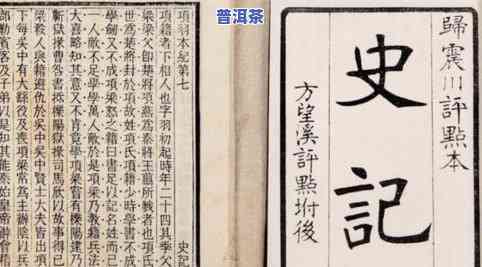 普洱茶
歸震川評點本
史記
方望溪評點坿後
史記
項羽本紀第七
項籍者下相人也字羽初起時年二十四其季父
項梁梁父卽楚將項燕為秦將王翦所戮者也項氏
世為楚將封於項故姓項氏項籍少時學書不成
學劍又不成項梁怒之籍曰書足以記名姓而已
一人敵不足學學萬人敵於是項梁乃教籍兵法
大喜略知其意又不肯竟學項梁嘗有櫟陽逮乃
蘄獄掾曹咎書抵櫟陽獄掾司馬欣以故事得已
梁殺人與籍避仇於吳中吳中賢士大夫皆出項
下每吳中有大繇役及喪項梁常為主辦陰以兵
部勒賓客及子弟以是知其能秦始皇帝游會稽